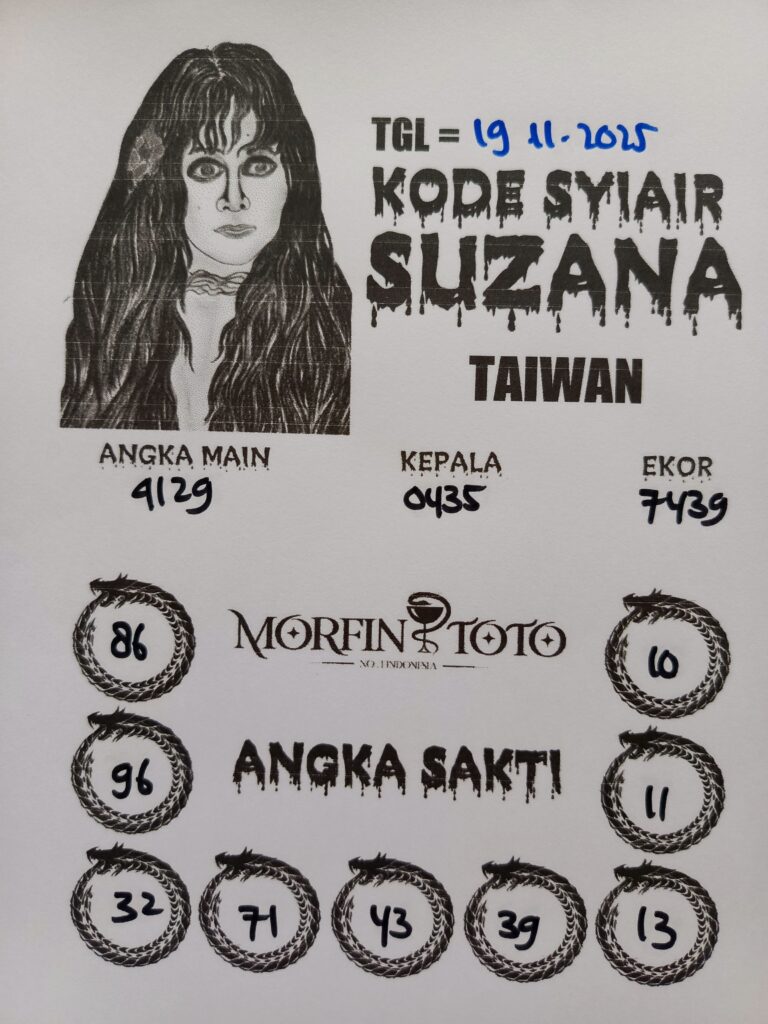 TGL = 19 11-2025
KODE SYIAIR
SUZANA
TAIWAN
ANGKA MAIN KEPALA EKOR
4129 0435 7439
86 MORFIN TOTO 10
NO.1 INDONESIA
96 ANGKA SAKTI 11
32 71 43 39 13